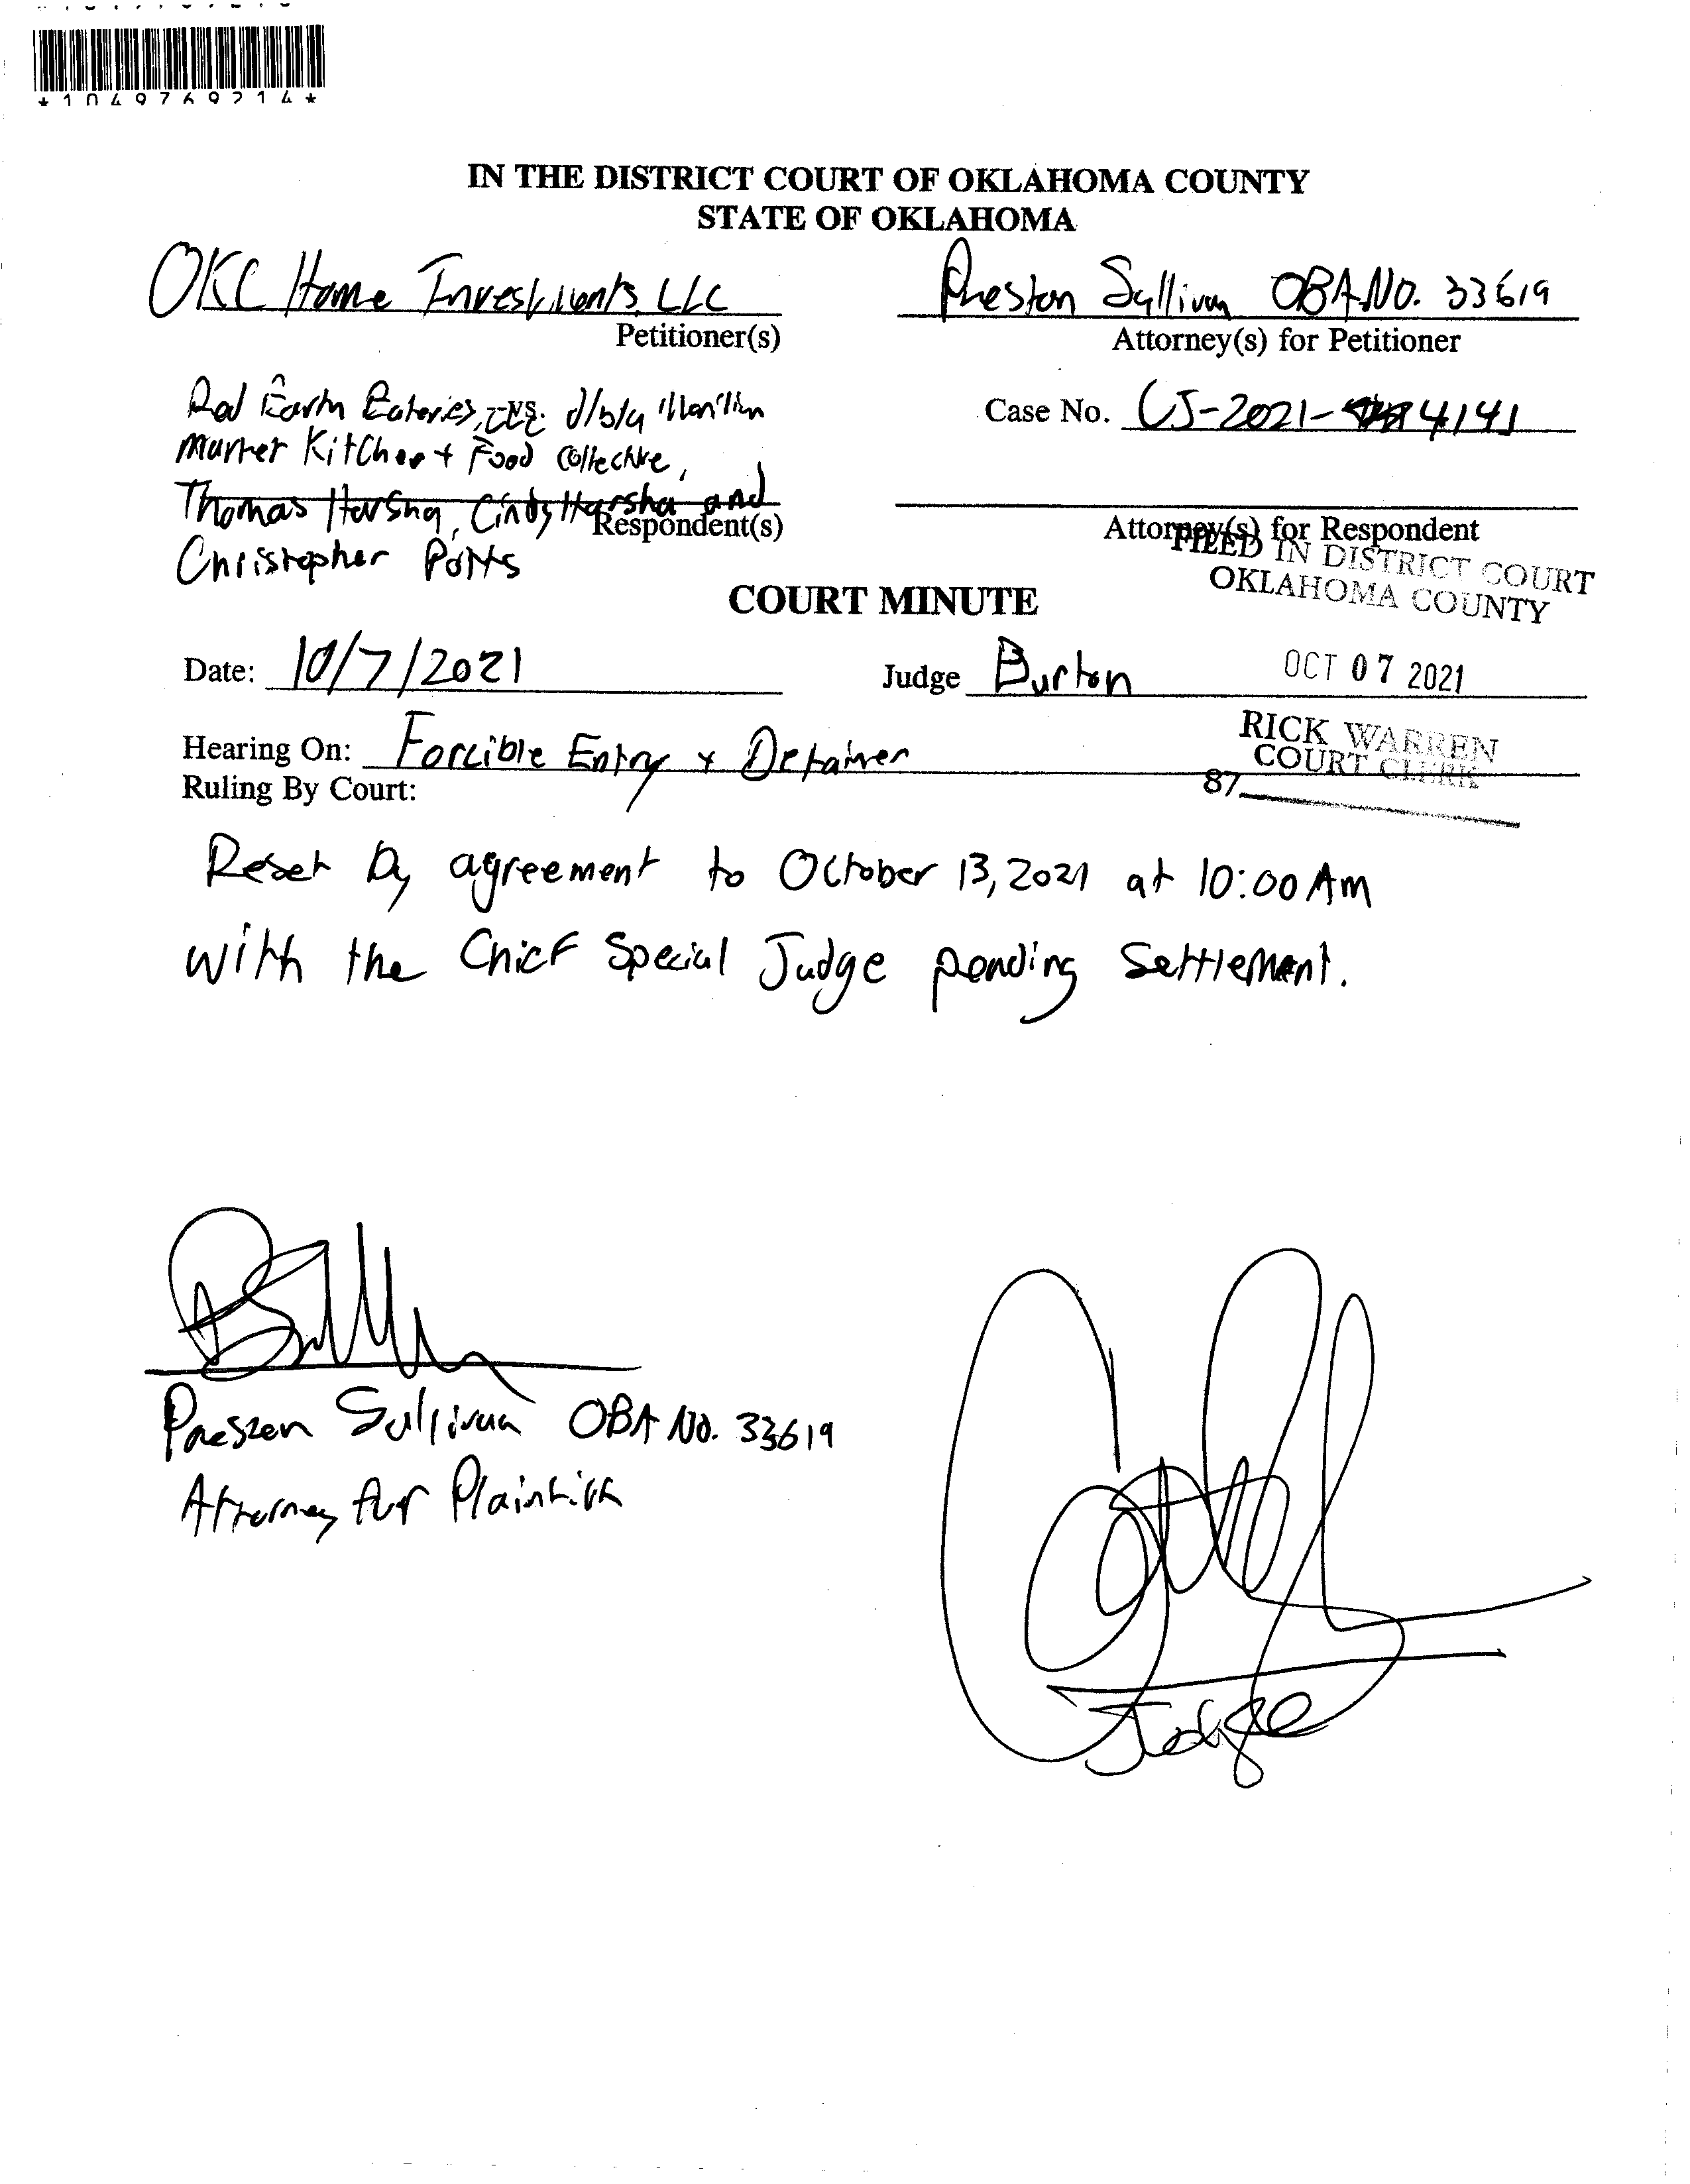 *1049769214*
IN THE DISTRICT COURT OF OKLAHOMA COUNTY
STATE OF OKLAHOMA
OKC Home Investments, LLC
Petitioner(s)
Preston Sullivan OBA NO. 33619
Attorney(s) for Petitioner
Red Earth Eateries, INC. d/b/a
Market Kitchen + Food Collective,
Thomas Harsha, Cindy Harsha and
Respondent(s)
Christopher Potts
Case No. CJ-2021-4141
Attorney(s) for Respondent
FILED IN DISTRICT COURT
OKLAHOMA COUNTY
COURT MINUTE
Date: 10/7/2021
Judge Burton
OCT 07 2021
Hearing On: Forcible Entry + Detainer
RICK WARREN
COURT CLERK
87
Ruling By Court:
Reset by agreement to October 13, 2021 at 10:00 AM
with the Chief Special Judge pending Settlement.
Preston Sullivan OBA NO. 33619
Attorney for Plaintiff
Judge